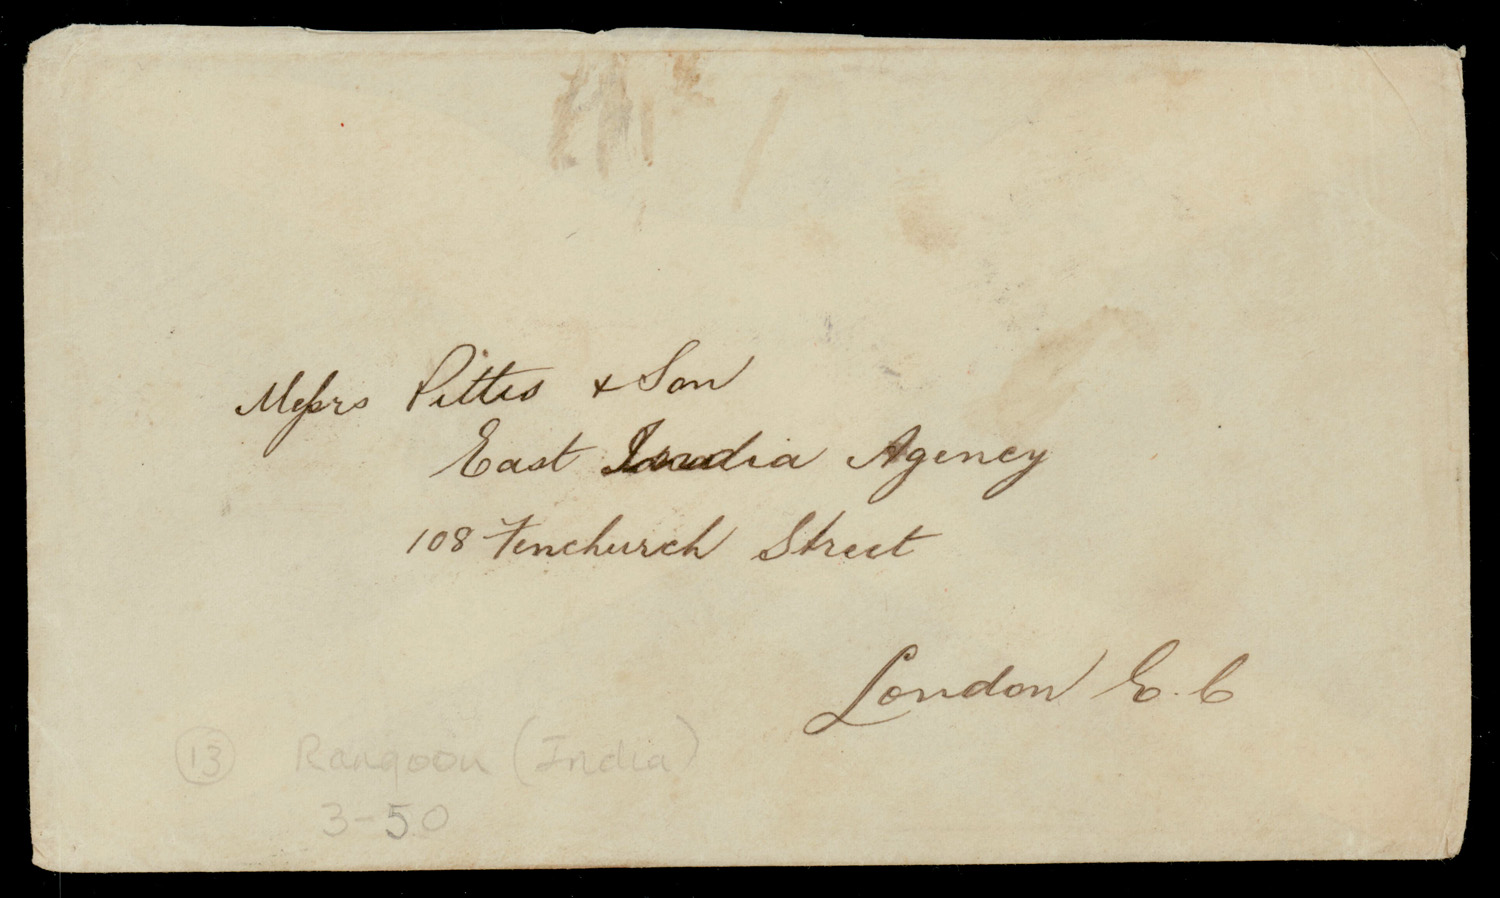 Messrs Pittis & Son
East India Agency
108 Fenchurch Street
London E.C
13 Rangoon (India)
3-50